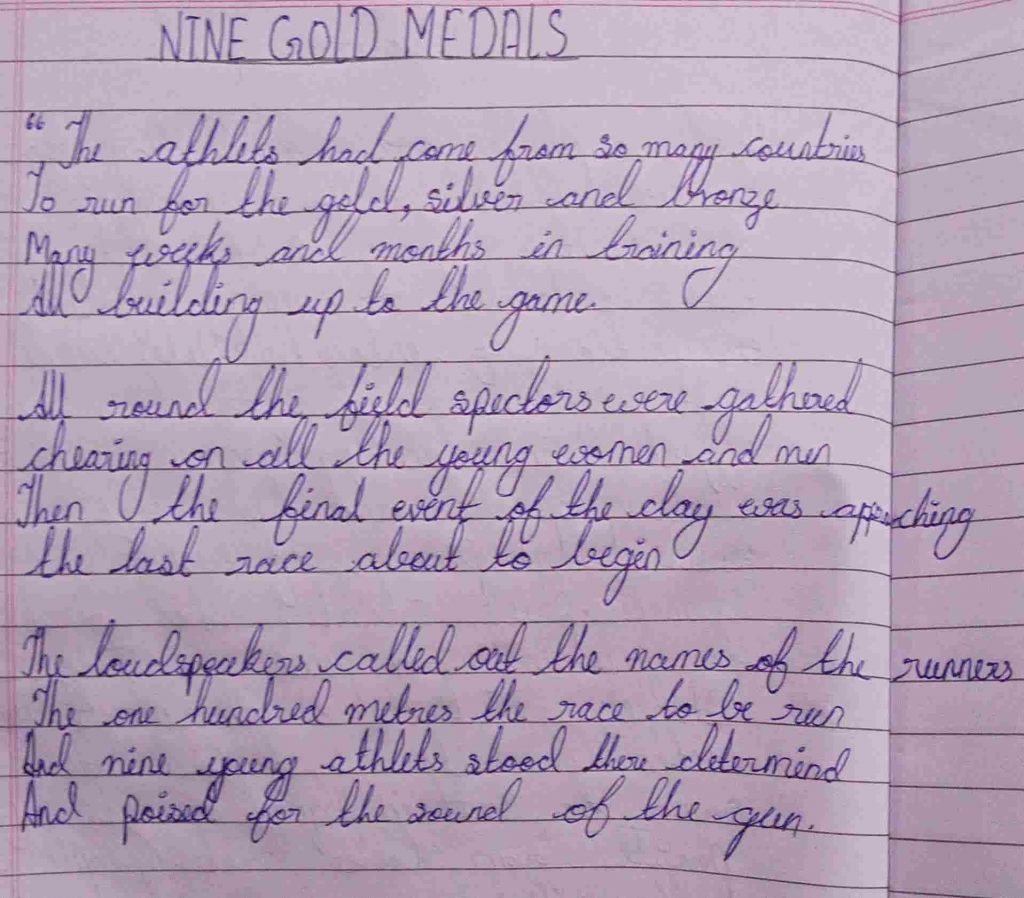 NINE GOLD MEDALS
“The athlets had come from so many countries
To run for the gold, silver and bronze
Many weeks and months in training
All building up to the game.
All round the field spectors were gathered
chearing on all the young women and men
Then the final event of the day was approching
the last race about to begin
The loudspeakers called out the names of the runners
The one hundred metres the race to be run
And nine young athlets stood there determind
And poised for the sound of the gun.